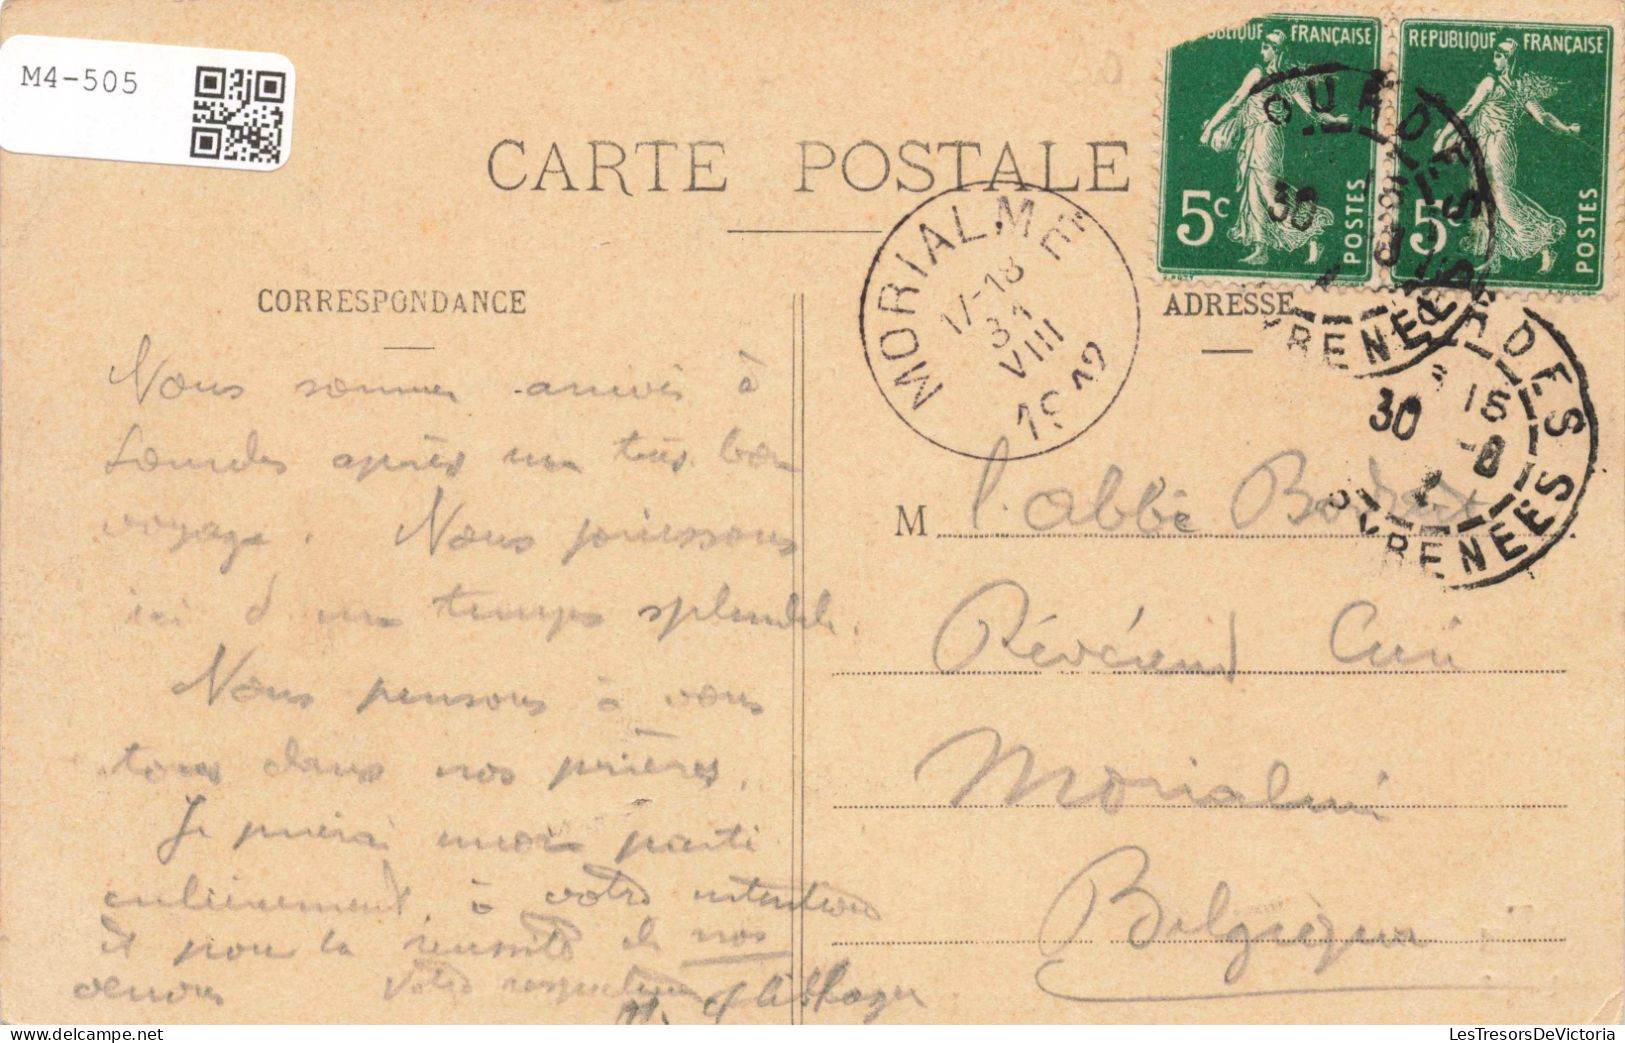 M4-505
CARTE POSTALE
REPUBLIQUE FRANÇAISE
5c
POSTES
REPUBLIQUE FRANÇAISE
5c
POSTES
MORIALMÉ
17-18
31
VIII
1912
LOURDES
30
PYRENEES
LOURDES
15
30 -8
PYRENEES
CORRESPONDANCE
ADRESSE
Nous sommes arrivés à
Lourdes après un très bon
voyage. Nous jouissons
ici d'un temps splendide.
Nous pensons à vous
tous dans nos prières.
Je prierai
à votre intention
et pour la réussite de nos
œuvres Votre respectueux
M l'abbé
Révérend Curé
Morialmé
Belgique
LesTresorsDeVictoria